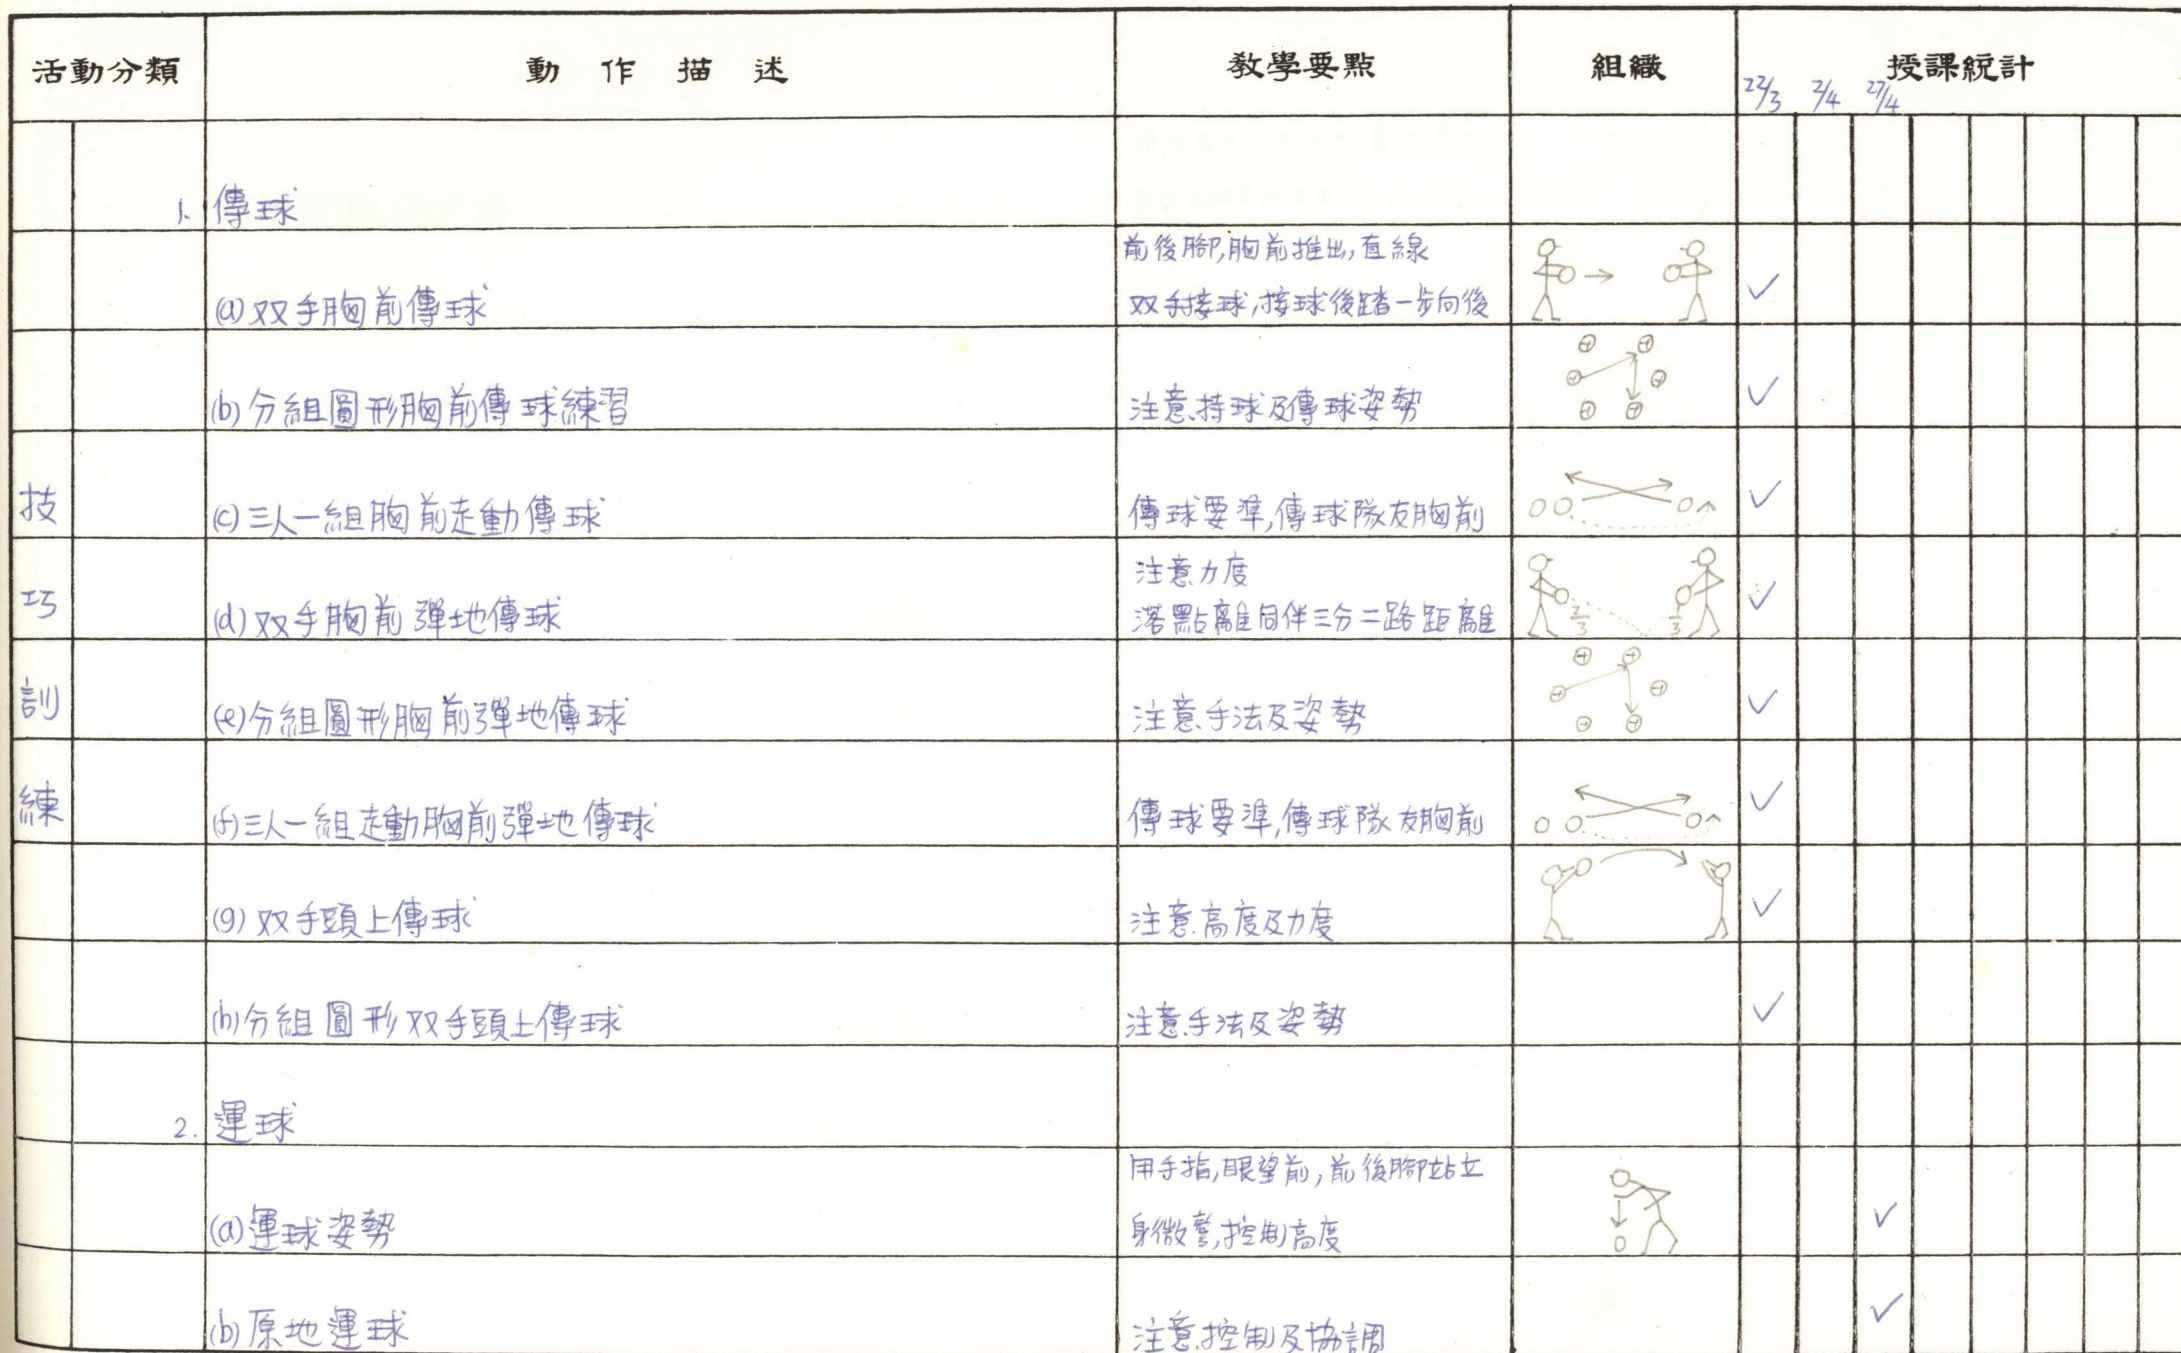 活動分類 動作描述 教學要點 組織 授課統計
22/3 2/4 27/4
技巧訓練
1. 傳球
(a) 双手胸前傳球 前後腳,胸前推出,直線
双手接球,接球後踏一步向後 ✓
(b) 分組圓形胸前傳球練習 注意持球及傳球姿勢 ✓
(c) 三人一組胸前走動傳球 傳球要準,傳球隊友胸前 ✓
(d) 双手胸前彈地傳球 注意力度
落點離同伴三分二路距離 2/3 1/3 ✓
(e) 分組圓形胸前彈地傳球 注意手法及姿勢 ✓
(f) 三人一組走動胸前彈地傳球 傳球要準,傳球隊友胸前 ✓
(g) 双手頭上傳球 注意高度及力度 ✓
(h) 分組圓形双手頭上傳球 注意手法及姿勢 ✓
2. 運球
(a) 運球姿勢 用手指,眼望前,前後腳站立
身微彎,控制高度 ✓
(b) 原地運球 注意控制及協調 ✓